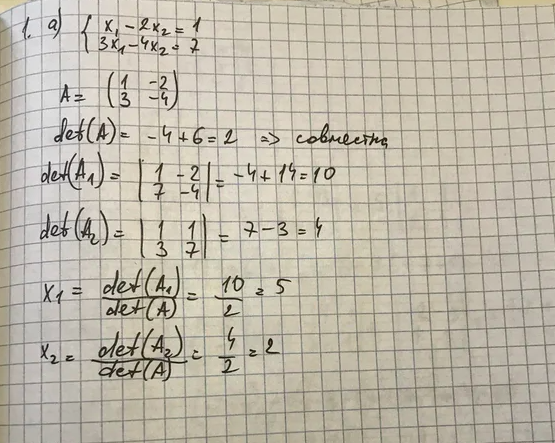 1. а) { x₁ - 2x₂ = 1
3x₁ - 4x₂ = 7
A = ( 1 -2
3 -4 )
det(A) = -4 + 6 = 2 => совместна
det(A₁) = | 1 -2
7 -4 | = -4 + 14 = 10
det(A₂) = | 1 1
3 7 | = 7 - 3 = 4
x₁ = det(A₁) / det(A) = 10 / 2 = 5
x₂ = det(A₂) / det(A) = 4 / 2 = 2